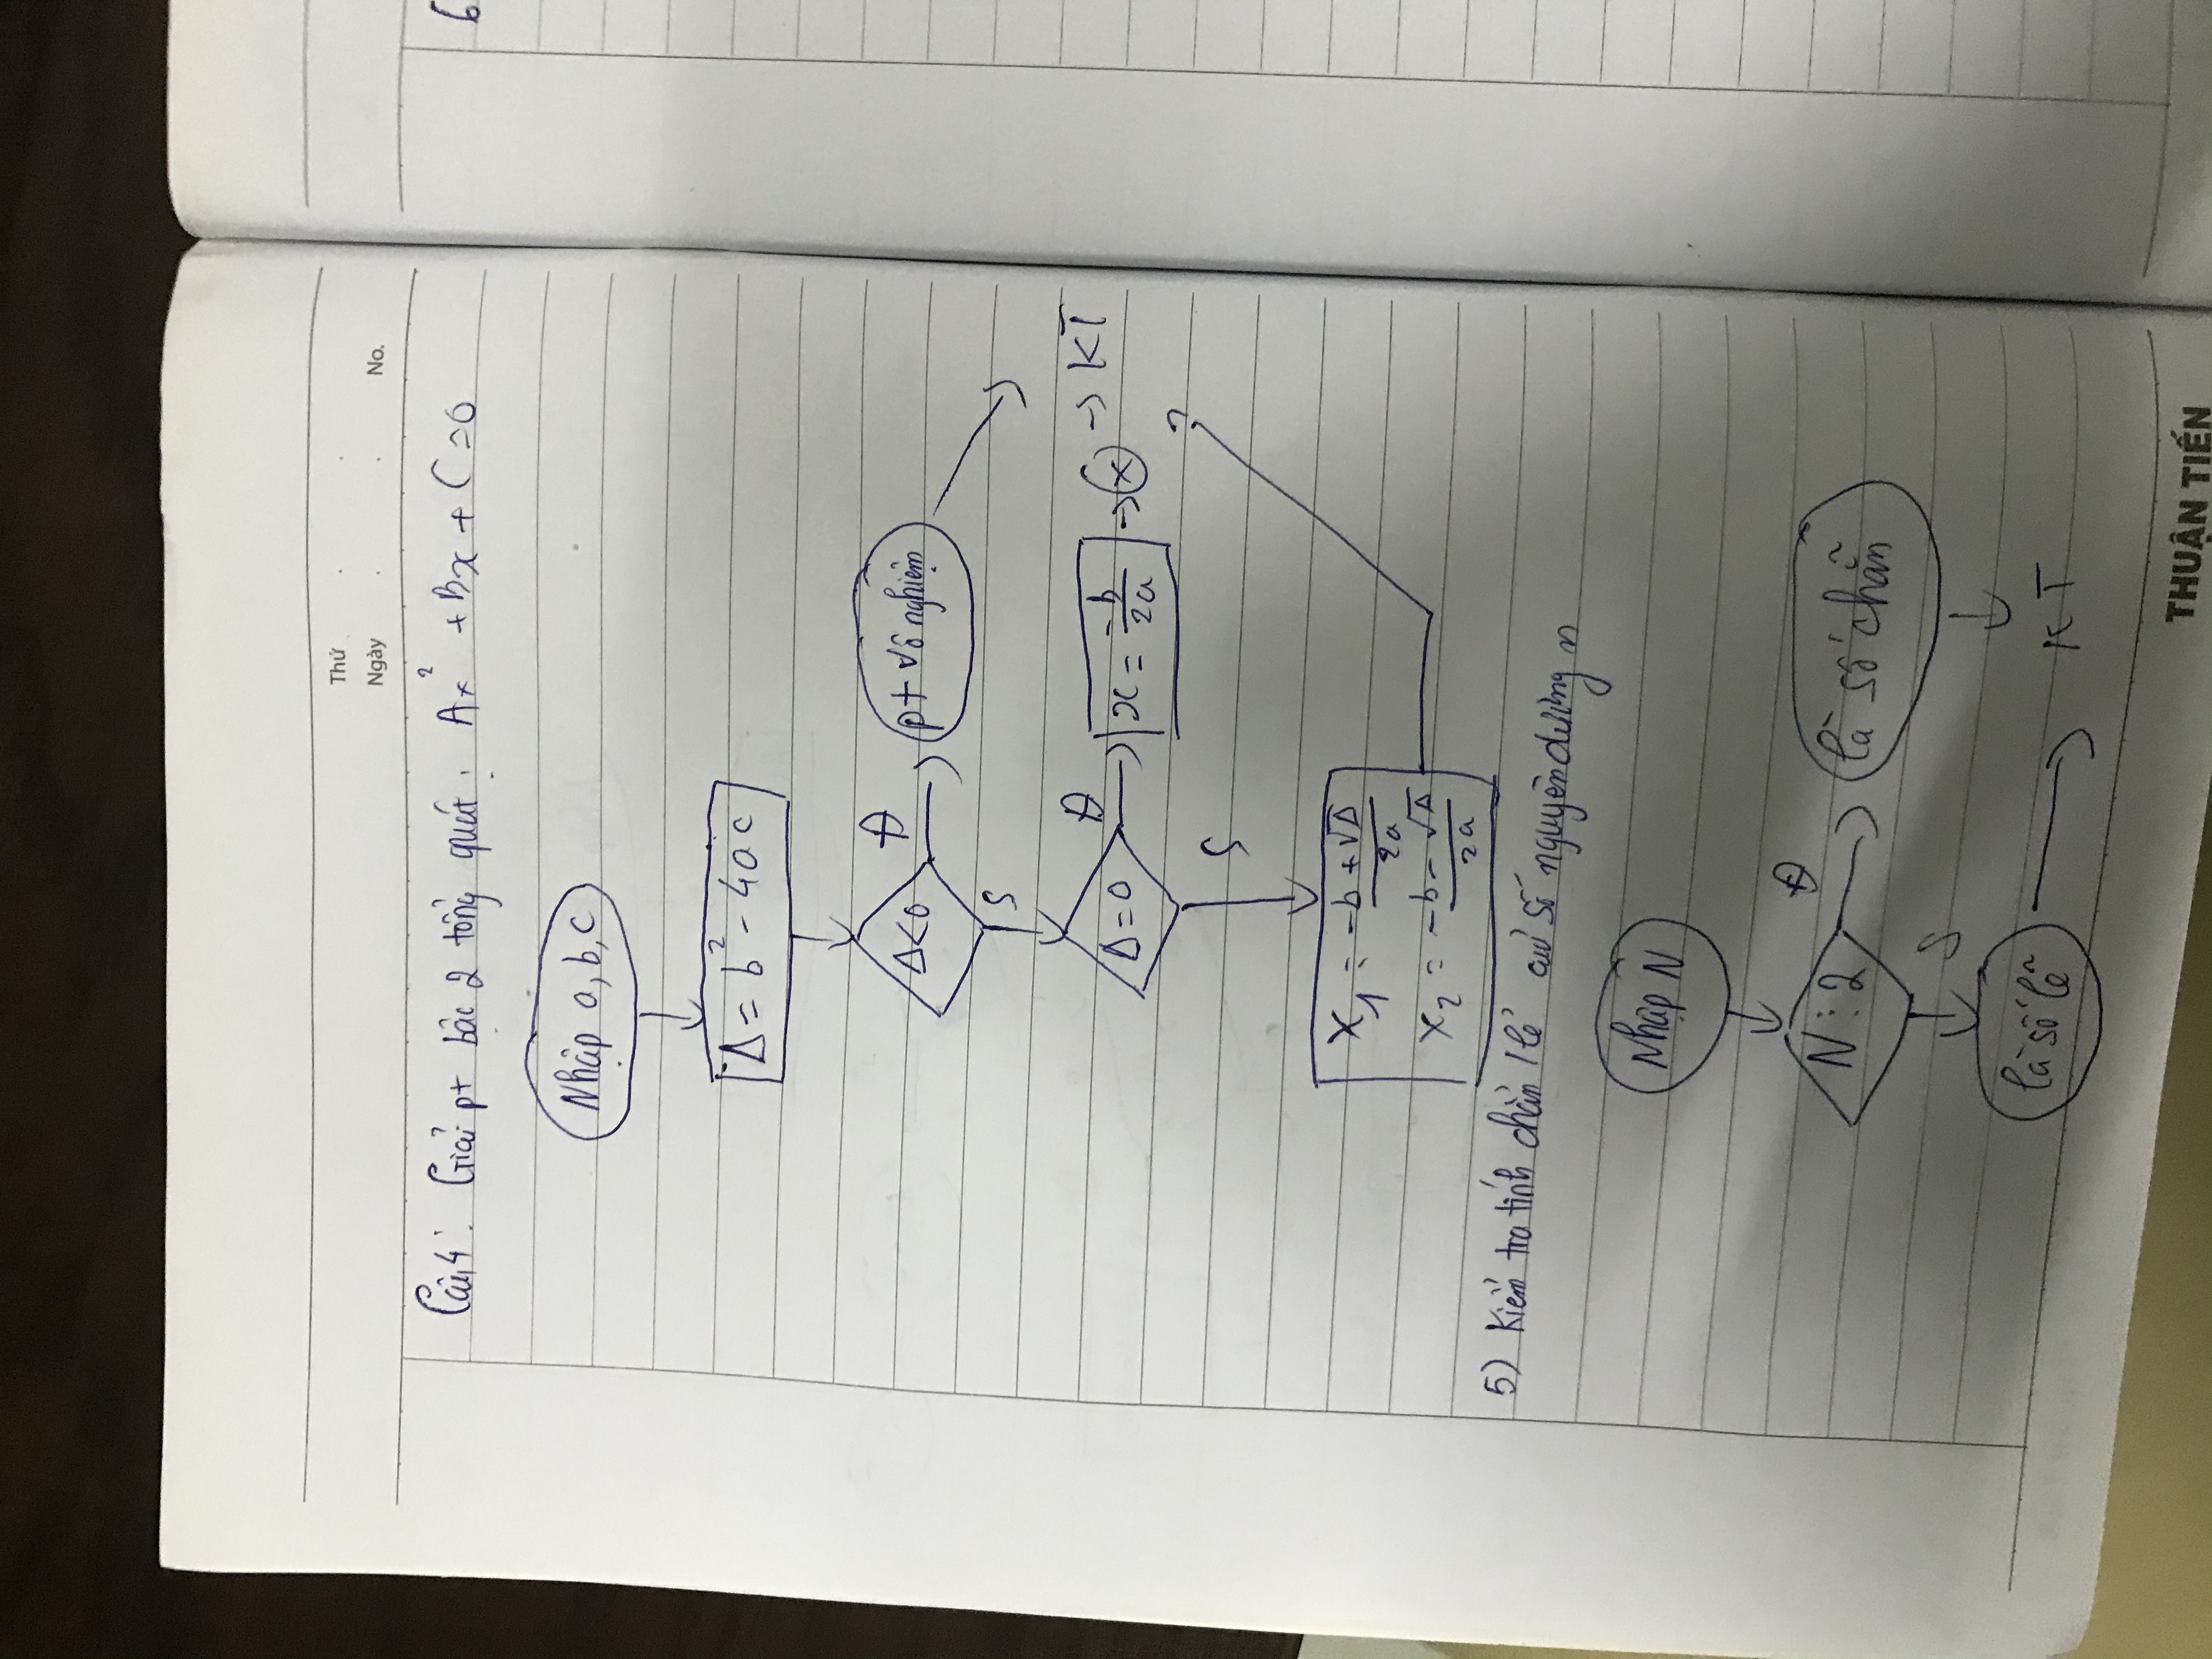 Thứ
Ngày
No.
Câu 4: Giải pt bậc 2 tổng quát: Ax² + Bx + C = 0
Nhập a, b, c
Δ = b² - 4ac
Δ<0
Đ
pt vô nghiệm
S
Δ=0
Đ
x = -b/2a
x
KT
S
x₁ = -b+√Δ/2a
x₂ = -b-√Δ/2a
5) Kiểm tra tính chẵn lẻ của số nguyên dương n
Nhập N
N : 2
Đ
là số chẵn
S
là số lẽ
KT
THUẬN TIẾN
6